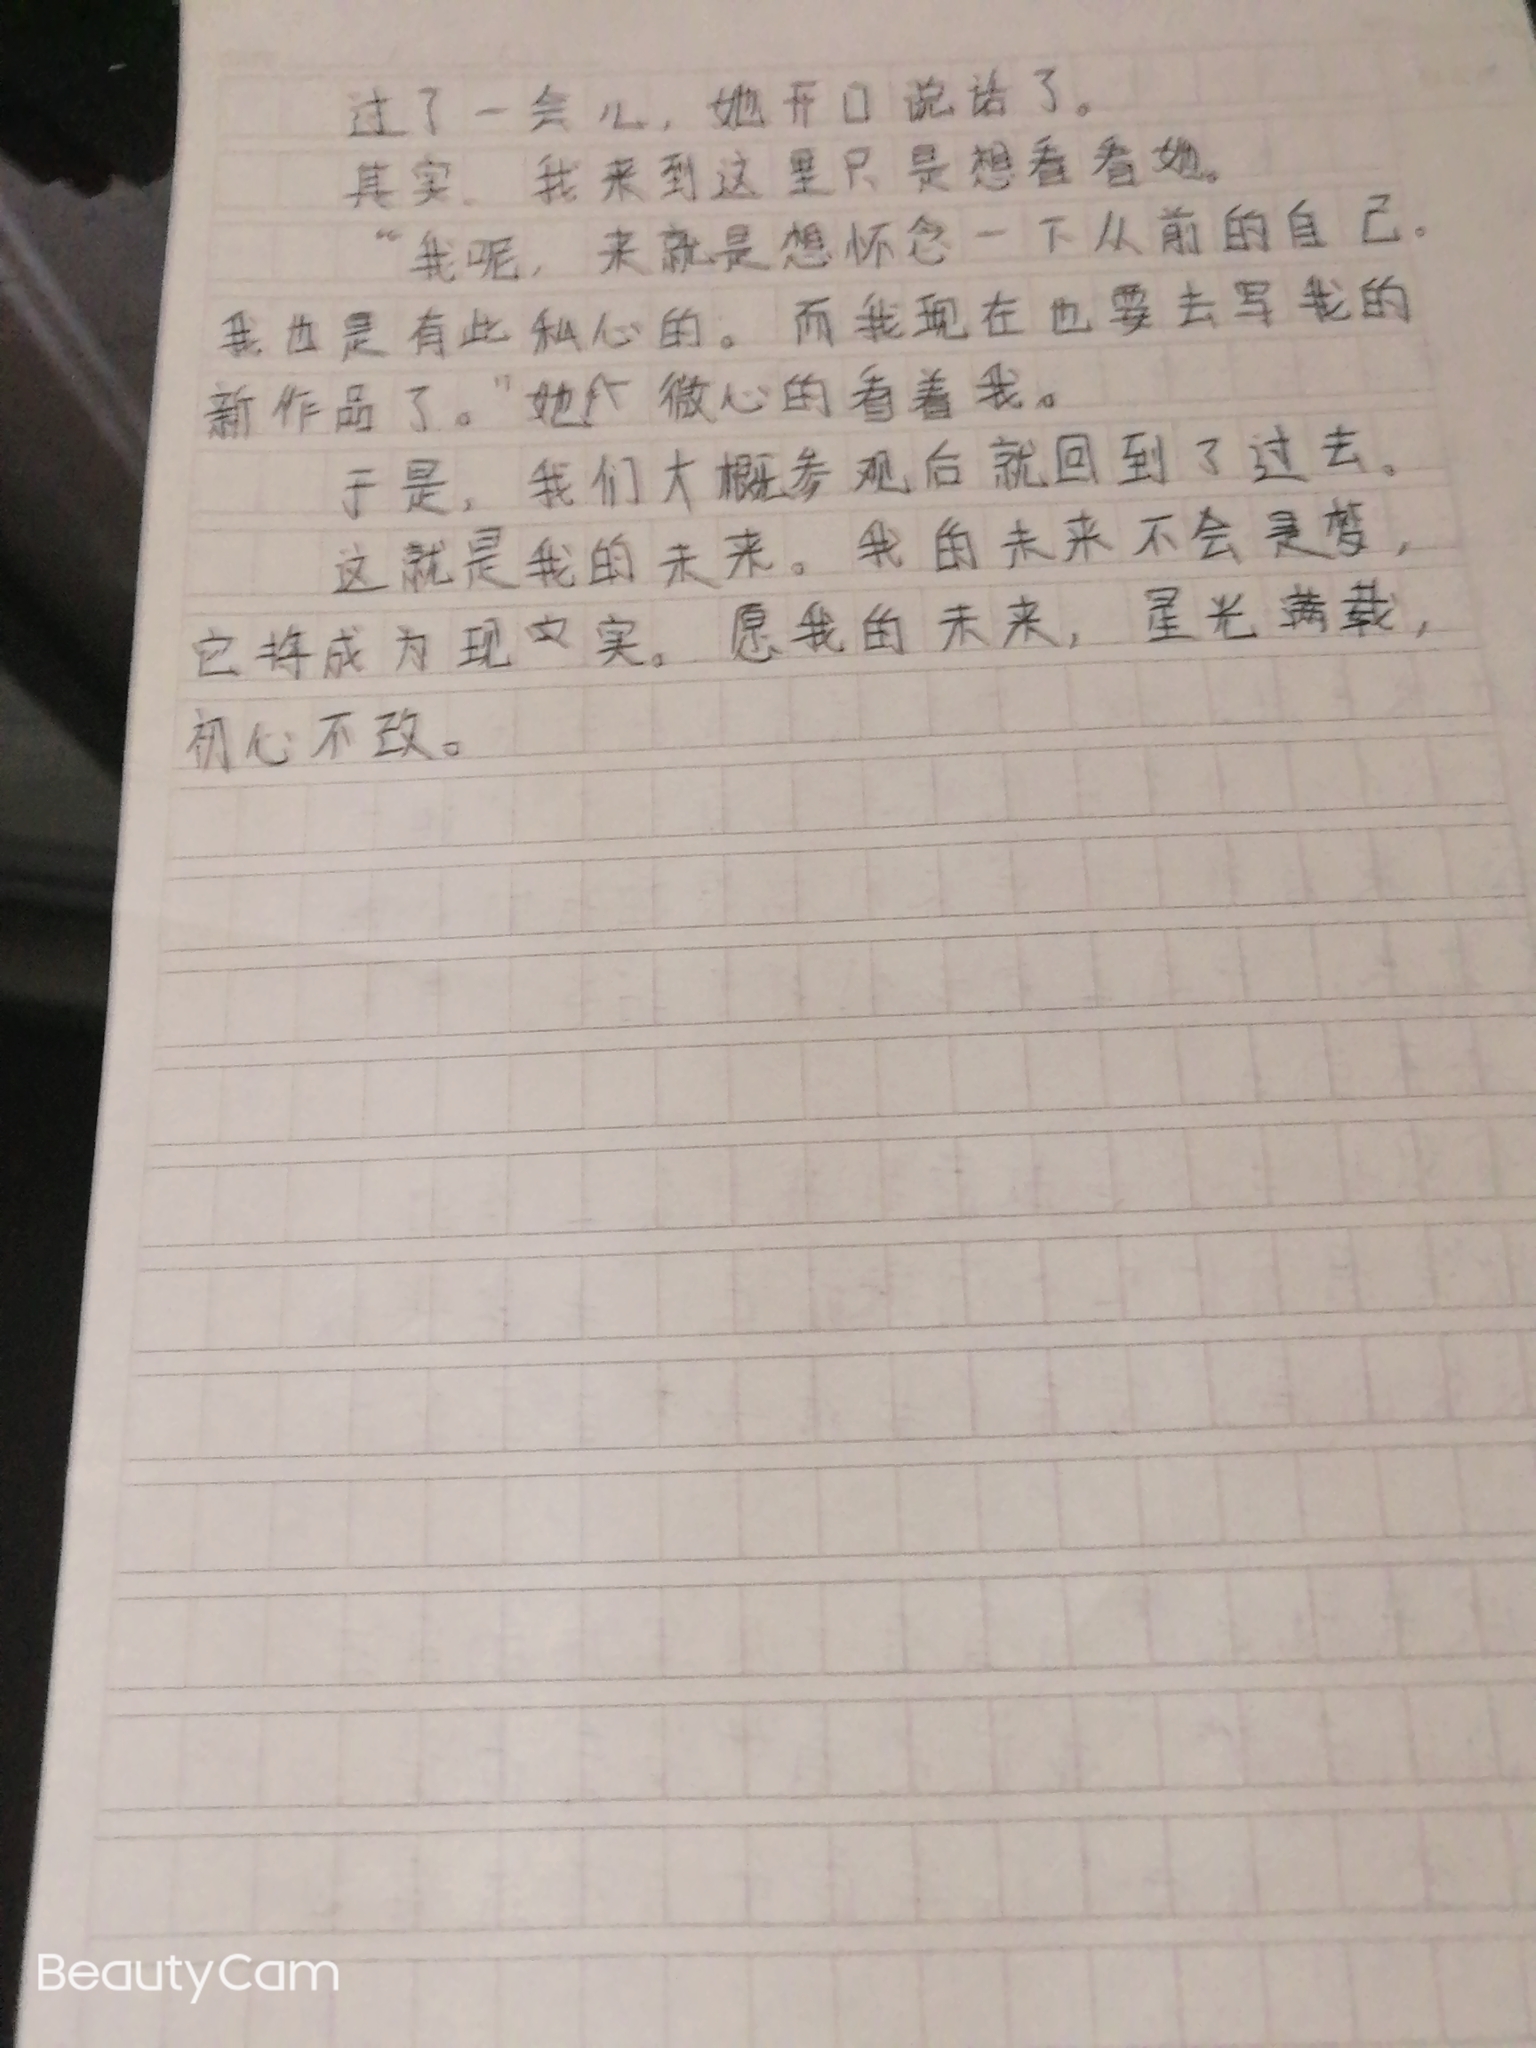 过了一会儿,她开口说话了。
其实、我来到这里只是想看看她。
“我呢,来就是想怀念一下从前的自己.
我也是有此私心的。而我现在也要去写我的
新作品了。”她 微心的看着我。
于是,我们大概参观后就回到了过去。
这就是我的未来。我的未来不会是梦,
它将成为现 实。愿我的未来,星光满载,
初心不改。
BeautyCam